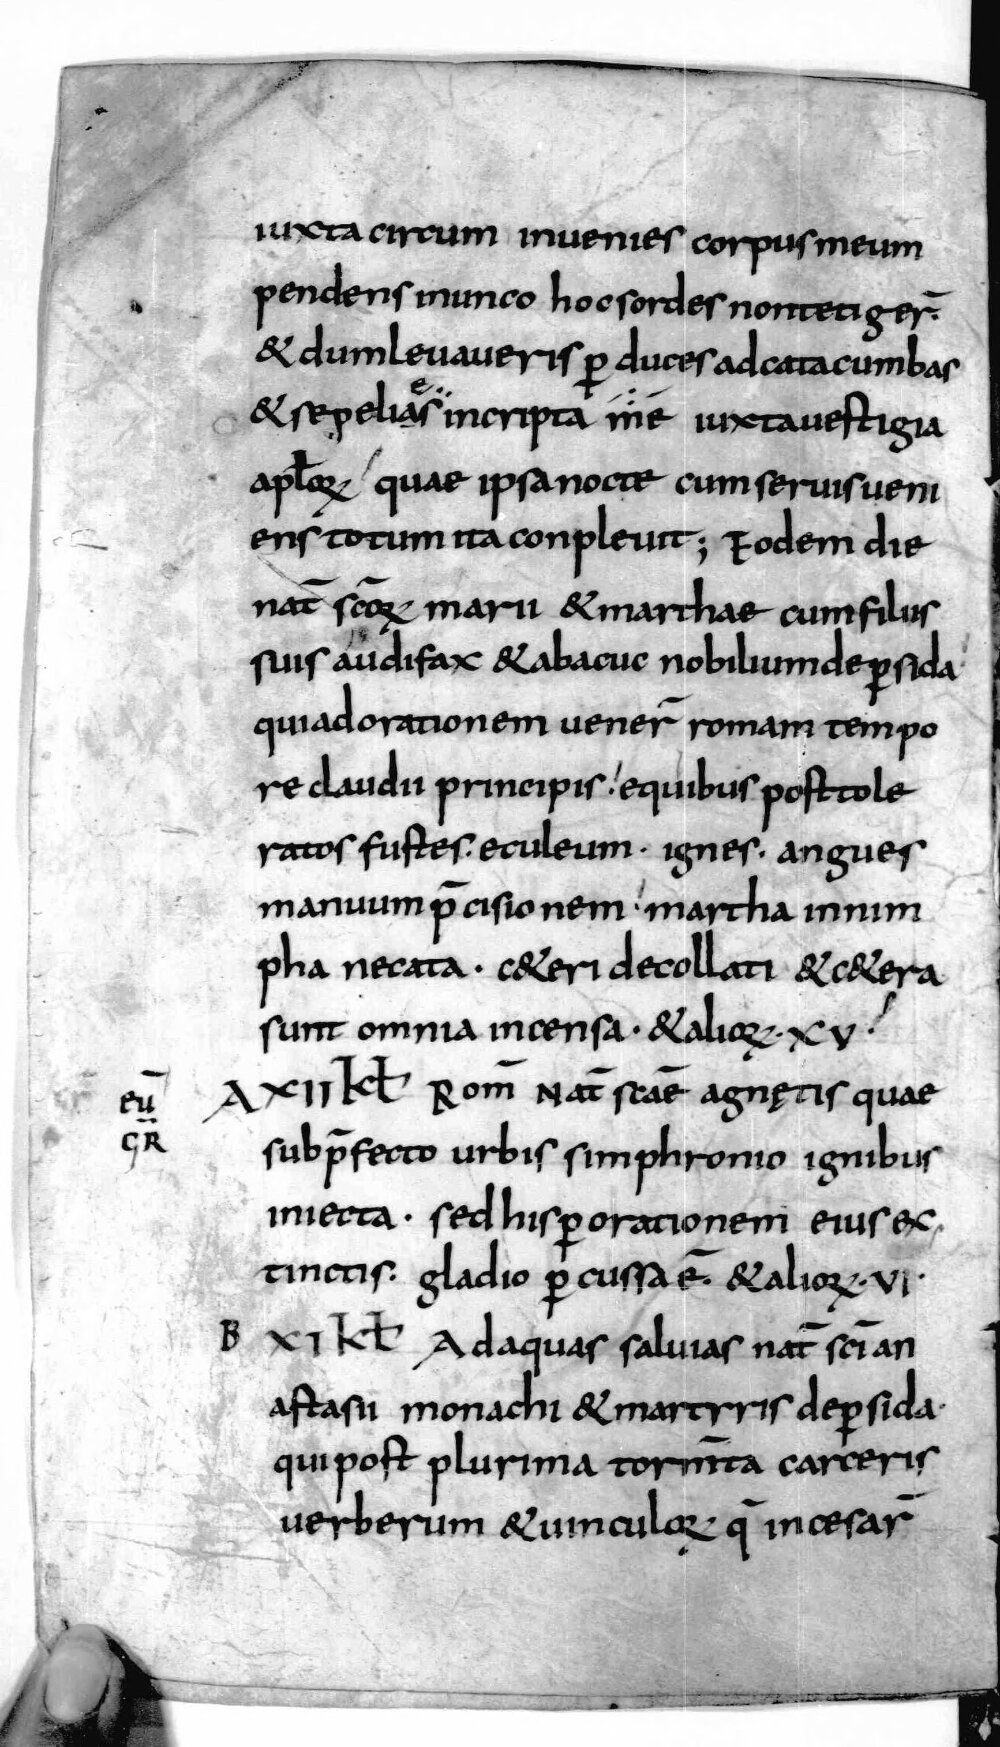 iuxta circum inuenies corpus meum
pendens in unco hoc sordes non tetiger̄.
& dum leuaueris ꝑ duces ad catacumbas
& sepelias in cripta iñe iuxta uestigia
aplorꝝ quae ipsa nocte cum seruis ueni
ens totum ita conpleuit; Eodem die
nat̄ scōrꝝ marii & marthae cum filiis
suis audifax & abacuc nobilium de ꝑsida
qui ad orationem uener̄ romam tempo
re claudii principis. e quibus post tole
ratos fustes. eculeum. ignes. angues
manuum p̄cisionem. martha in nim
pha necata. c&eri decollati & c&era
sunt omnia incensa. & aliorꝝ. xv.
eū
GR
A XII kł Rom̄ Nat̄ scāe agnętis quae
sub p̄fecto urbis simphronio ignibus
iniecta. sed his ꝑ orationem eius ex
tinctis. gladio ꝑcussa ē. & aliorꝝ. vi.
B XI kł Ad aquas saluias nat̄ scī an
astasii monachi & martyris de ꝑsida.
qui post plurima torm̄ta carceris
uerberum & uinculorꝝ q̄ in cesar̄